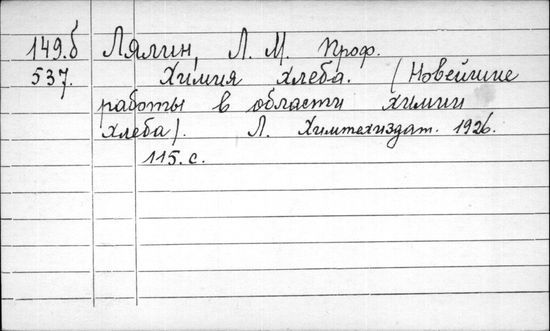 149.б Лялин, Л. М. Проф.
537. Химия хлеба. (Новейшие
работы в области химии
хлеба). Л. Химтехиздат. 1926.
115. с.